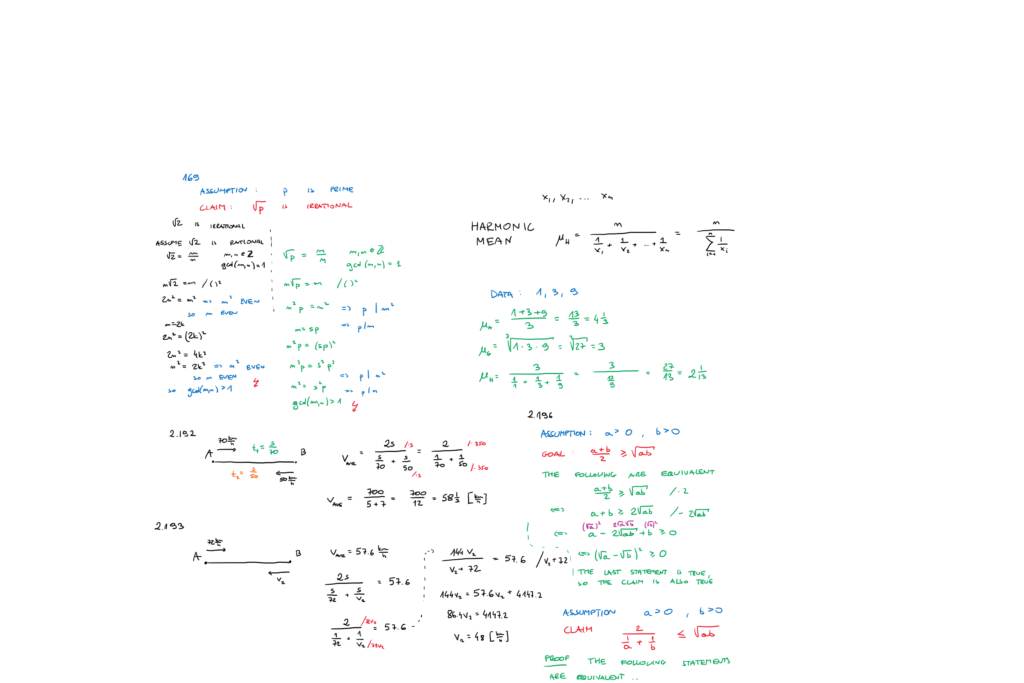 169
ASSUMPTION : p IS PRIME
CLAIM : √p IS IRRATIONAL
√2 IS IRRATIONAL
ASSUME √2 IS RATIONAL
√2 = m/n m, n ∈ ℤ
gcd(m,n) = 1
n√2 = m /()²
2n² = m² => m² EVEN
SO m EVEN
m = 2k
2n² = (2k)²
2n² = 4k²
n² = 2k² => n² EVEN
SO n EVEN
SO gcd(m,n) > 1 ↯
√p = m/n m, n ∈ ℤ
gcd(m,n) = 1
n√p = m /()²
n²p = m² => p | m²
m = sp => p | m
n²p = (sp)²
n²p = s²p²
n² = s²p => p | n²
=> p | n
gcd(m,n) > 1 ↯
x₁, x₂, ... xₙ
HARMONIC MEAN μ_H = n / (1/x₁ + 1/x₂ + ... + 1/xₙ) = n / ∑ᵢ₌₁ⁿ 1/xᵢ
DATA : 1, 3, 9
μ_A = (1+3+9)/3 = 13/3 = 4 1/3
μ_G = ∛(1·3·9) = ∛27 = 3
μ_H = 3 / (1/1 + 1/3 + 1/9) = 3 / (13/9) = 27/13 = 2 1/13
2.192
70 km/h t₁ = s/70
A B
t₂ = s/50 50 km/h
V_AVE = 2s / (s/70 + s/50) /:s /:s = 2 / (1/70 + 1/50) /·350 /·350
V_AVE = 700/(5+7) = 700/12 = 58 1/3 [km/h]
2.193
72 km/h
A B
V₂
V_AVE = 57.6 km/h
2s / (s/72 + s/V₂) = 57.6
2 / (1/72 + 1/V₂) /·72V₂ /·72V₂ = 57.6
144 V₂ / (V₂ + 72) = 57.6 /·V₂+72
144V₂ = 57.6V₂ + 4147.2
86.4V₂ = 4147.2
V₂ = 48 [km/h]
2.196
ASSUMPTION : a > 0 , b > 0
GOAL : (a+b)/2 ≥ √ab
THE FOLLOWING ARE EQUIVALENT
(a+b)/2 ≥ √ab /·2
<=> a + b ≥ 2√ab /-2√ab
(√a)² 2√a√b (√b)²
<=> a - 2√ab + b ≥ 0
<=> (√a - √b)² ≥ 0
THE LAST STATEMENT IS TRUE,
SO THE CLAIM IS ALSO TRUE
ASSUMPTION a > 0 , b > 0
CLAIM 2 / (1/a + 1/b) ≤ √ab
PROOF THE FOLLOWING STATEMENTS
ARE EQUIVALENT ..